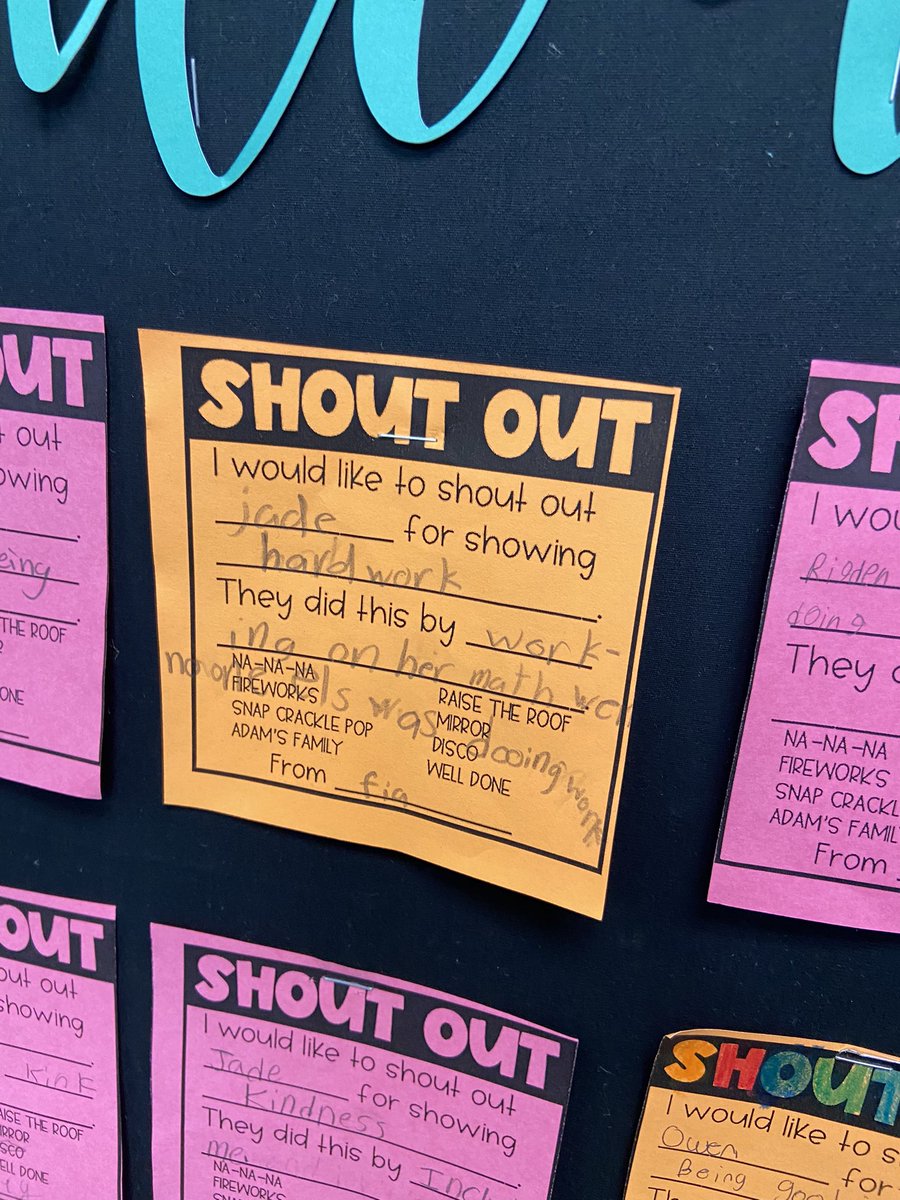 OUT
t out
owing
eing
THE ROOF
ONE
SHOUT OUT
I would like to shout out
jade for showing
hard work.
They did this by work-
ing on her math wen
noone els was dooing work
NA-NA-NA
FIREWORKS
SNAP CRACKLE POP
ADAM'S FAMILY
RAISE THE ROOF
MIRROR
DISCO
WELL DONE
From fia
SH
I wou
Rigden
doing
They d
NA-NA-NA
FIREWORKS
SNAP CRACKLE
ADAM'S FAMILY
From
OUT
out out
showing
kink
AISE THE ROOF
MIRROR
ISCO
ELL DONE
ty
SHOUT OUT
I would like to shout out
Jade for showing
Kindness.
They did this by Incl
NA-NA-NA
FIREWORKS
SHOUT
I would like to s
Owen for
Being goo
Th